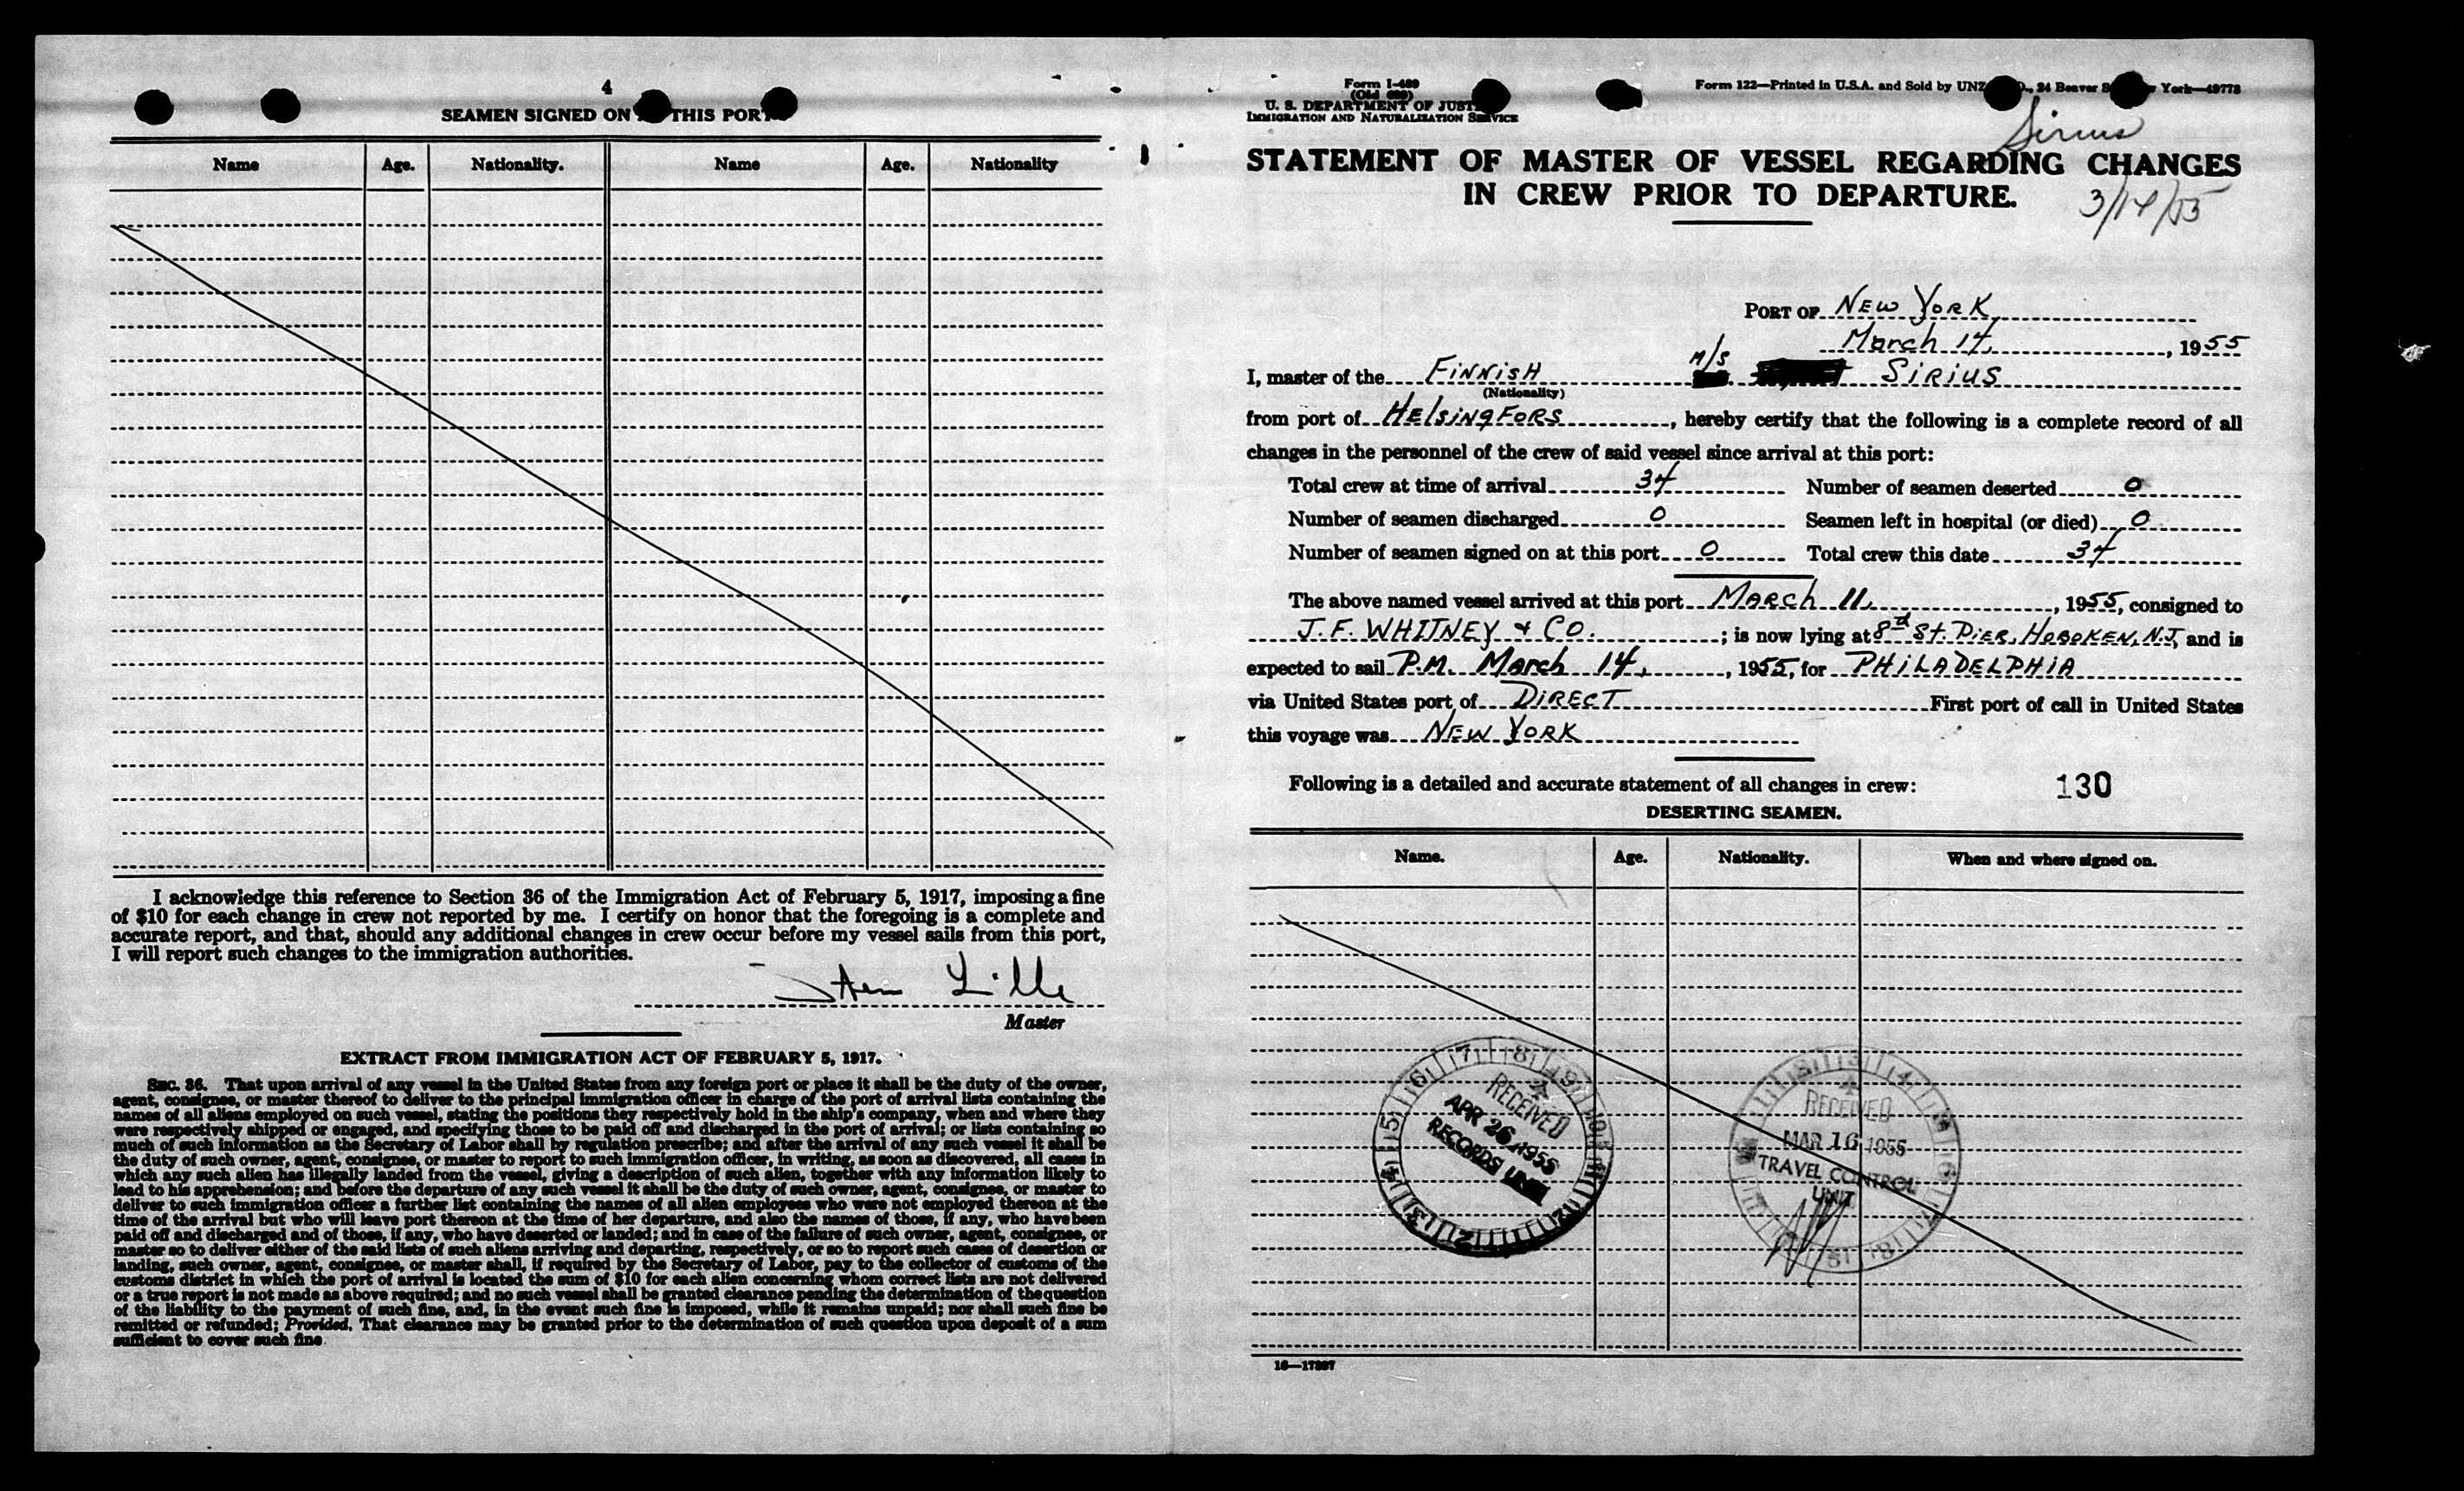 4
SEAMEN SIGNED ON THIS PORT
Name Age. Nationality. Name Age. Nationality
I acknowledge this reference to Section 36 of the Immigration Act of February 5, 1917, imposing a fine
of $10 for each change in crew not reported by me. I certify on honor that the foregoing is a complete and
accurate report, and that, should any additional changes in crew occur before my vessel sails from this port,
I will report such changes to the immigration authorities.
Master
EXTRACT FROM IMMIGRATION ACT OF FEBRUARY 5, 1917.
SEC. 36. That upon arrival of any vessel in the United States from any foreign port or place it shall be the duty of the owner,
agent, consignee, or master thereof to deliver to the principal immigration officer in charge of the port of arrival lists containing the
names of all aliens employed on such vessel, stating the positions they respectively hold in the ship's company, when and where they
were respectively shipped or engaged, and specifying those to be paid off and discharged in the port of arrival; or lists containing so
much of such information as the Secretary of Labor shall by regulation prescribe; and after the arrival of any such vessel it shall be
the duty of such owner, agent, consignee, or master to report to such immigration officer, in writing, as soon as discovered, all cases in
which any such alien has illegally landed from the vessel, giving a description of such alien, together with any information likely to
lead to his apprehension; and before the departure of any such vessel it shall be the duty of such owner, agent, consignee, or master to
deliver to such immigration officer a further list containing the names of all alien employees who were not employed thereon at the
time of the arrival but who will leave port thereon at the time of her departure, and also the names of those, if any, who have been
paid off and discharged and of those, if any, who have deserted or landed; and in case of the failure of such owner, agent, consignee, or
master so to deliver either of the said lists of such aliens arriving and departing, respectively, or so to report such cases of desertion or
landing, such owner, agent, consignee, or master shall, if required by the Secretary of Labor, pay to the collector of customs of the
customs district in which the port of arrival is located the sum of $10 for each alien concerning whom correct lists are not delivered
or a true report is not made as above required; and no such vessel shall be granted clearance pending the determination of the question
of the liability to the payment of such fine, and, in the event such fine is imposed, while it remains unpaid; nor shall such fine be
remitted or refunded; Provided, That clearance may be granted prior to the determination of such question upon deposit of a sum
sufficient to cover such fine.
Form I-489
(Old 689)
U. S. DEPARTMENT OF JUSTICE
IMMIGRATION AND NATURALIZATION SERVICE
Form 122—Printed in U.S.A. and Sold by UNZ 24 Beaver York—49778
Sirius
STATEMENT OF MASTER OF VESSEL REGARDING CHANGES
IN CREW PRIOR TO DEPARTURE.
3/14/55
PORT OF NEW YORK
March 14, 1955
I, master of the FINNISH M/S SIRIUS
(Nationality)
from port of HELSINGFORS, hereby certify that the following is a complete record of all
changes in the personnel of the crew of said vessel since arrival at this port:
Total crew at time of arrival 34 Number of seamen deserted 0
Number of seamen discharged 0 Seamen left in hospital (or died) 0
Number of seamen signed on at this port 0 Total crew this date 34
The above named vessel arrived at this port MARCH 11, 1955, consigned to
J.F. WHITNEY & CO. ; is now lying at 8th St. PIER, HOBOKEN, N.J. and is
expected to sail P.M. March 14, 1955, for PHILADELPHIA
via United States port of DIRECT First port of call in United States
this voyage was NEW YORK
Following is a detailed and accurate statement of all changes in crew: 130
DESERTING SEAMEN.
Name. Age. Nationality. When and where signed on.
RECEIVED
APR 26 1955
RECORDS UNIT
RECEIVED
MAR 16 1955
TRAVEL CONTROL
UNIT
16—17397